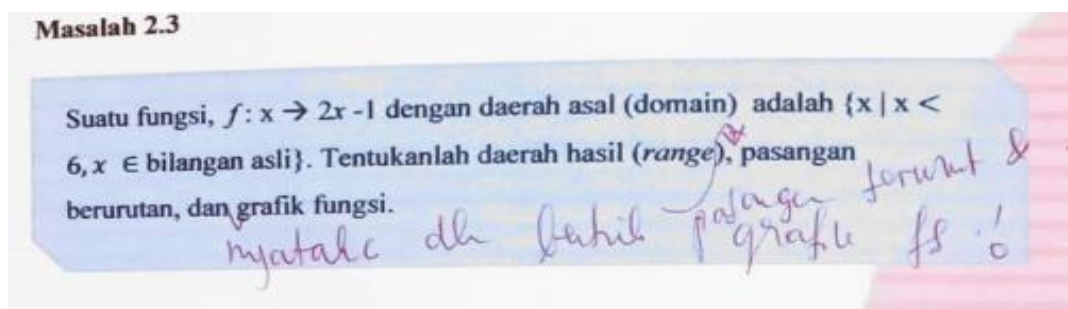 Masalah 2.3
Suatu fungsi, f : x → 2x -1 dengan daerah asal (domain) adalah {x | x <
6, x ∈ bilangan asli}. Tentukanlah daerah hasil (range), pasangan
berurutan, dan grafik fungsi.
terurut &
pasangan
grafik fs !